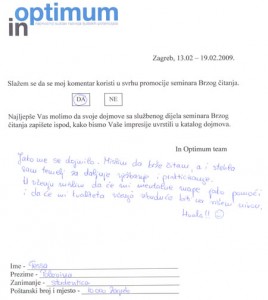 optimum
in
Zagreb, 13.02 – 19.02.2009.
Slažem se da se moj komentar koristi u svrhu promocije seminara Brzog čitanja.
DA NE
Najljepše Vas molimo da svoje dojmove sa službenog dijela seminara Brzog
čitanja zapišete ispod, kako bismo Vaše impresije uvrstili u katalog dojmova.
In Optimum team
Jako me se dojmilo. Mislim da brže čitam, a i stekla
sam temelj za daljnje vježbanje i prakticiranje.
U učenju mislim da će mi mentalne mape jako pomoći
i da će mi kvaliteta učenja biti na višem nivou.
Hvala!! ☺
Ime -
Prezime -
Zanimanje - studentica
Poštanski broj i mjesto - 10000 Zagreb